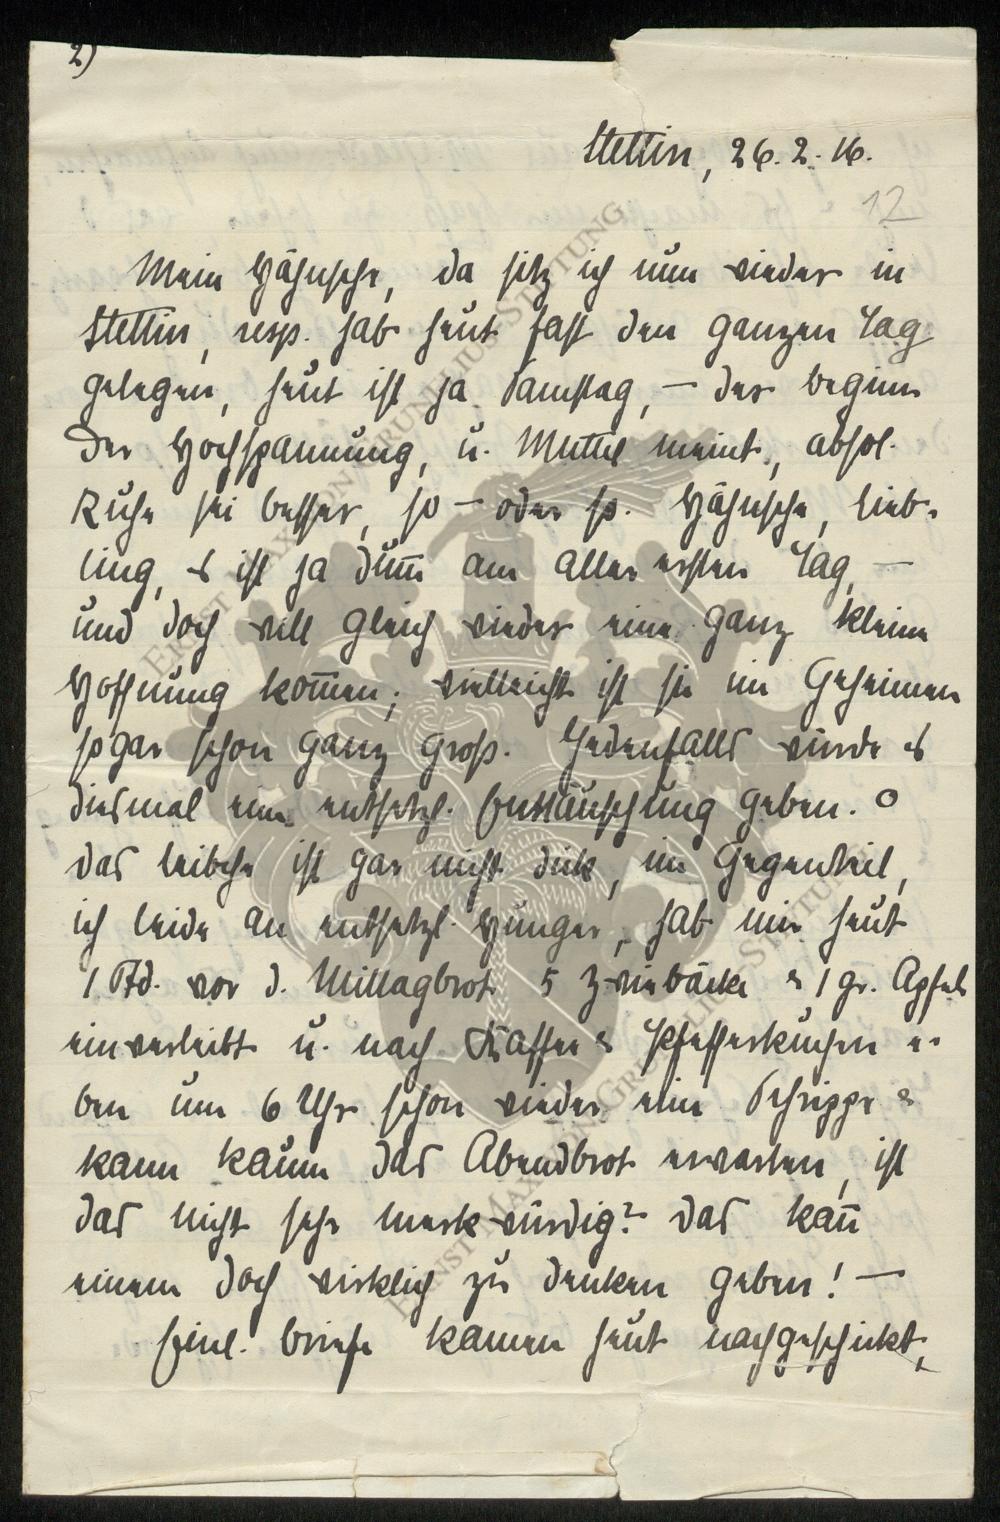 2)
Stettin, 26.2.16.
12
Mein Hähnsche, da sitz ich nun wieder in
Stettin, resp. hab heut fast den ganzen Tag
gelegen, heut ist ja Samstag, — der beginn
der Hochspannung, u. Muttel meint, absol.
Ruhe sei besser, so — oder so. Hähnsche, lieb-
ling, es ist ja dum̅ am aller ersten Tag, —
und doch will gleich wieder eine ganz kleine
Hoffnung kom̅en; vielleicht ist sie im Geheimen
sogar schon ganz gross. Jedenfalls würde es
diesmal eine entsetzl. Enttäuschung geben. O
das leibche ist gar nicht dick, im Gegenteil,
ich leide an entsetzl. Hunger, hab mir heut
1 Std. vor d. Mittagbrot 5 Zwiebäcke & 1 gr. Apfel
einverleibt u. nach Kaffee & Pfefferkuchen e-
ben um 6 Uhr schon wieder eine Schrippe &
kann kaum das Abendbrot erwarten, ist
das nicht sehr merkwürdig? Das kan̅
einem doch wirklich zu denken geben! —
Einl. briefe kamen heut nachgeschickt,
ERNST MAX VON GRUNELIUS-STIFTUNG
ERNST MAX VON GRUNELIUS-STIFTUNG